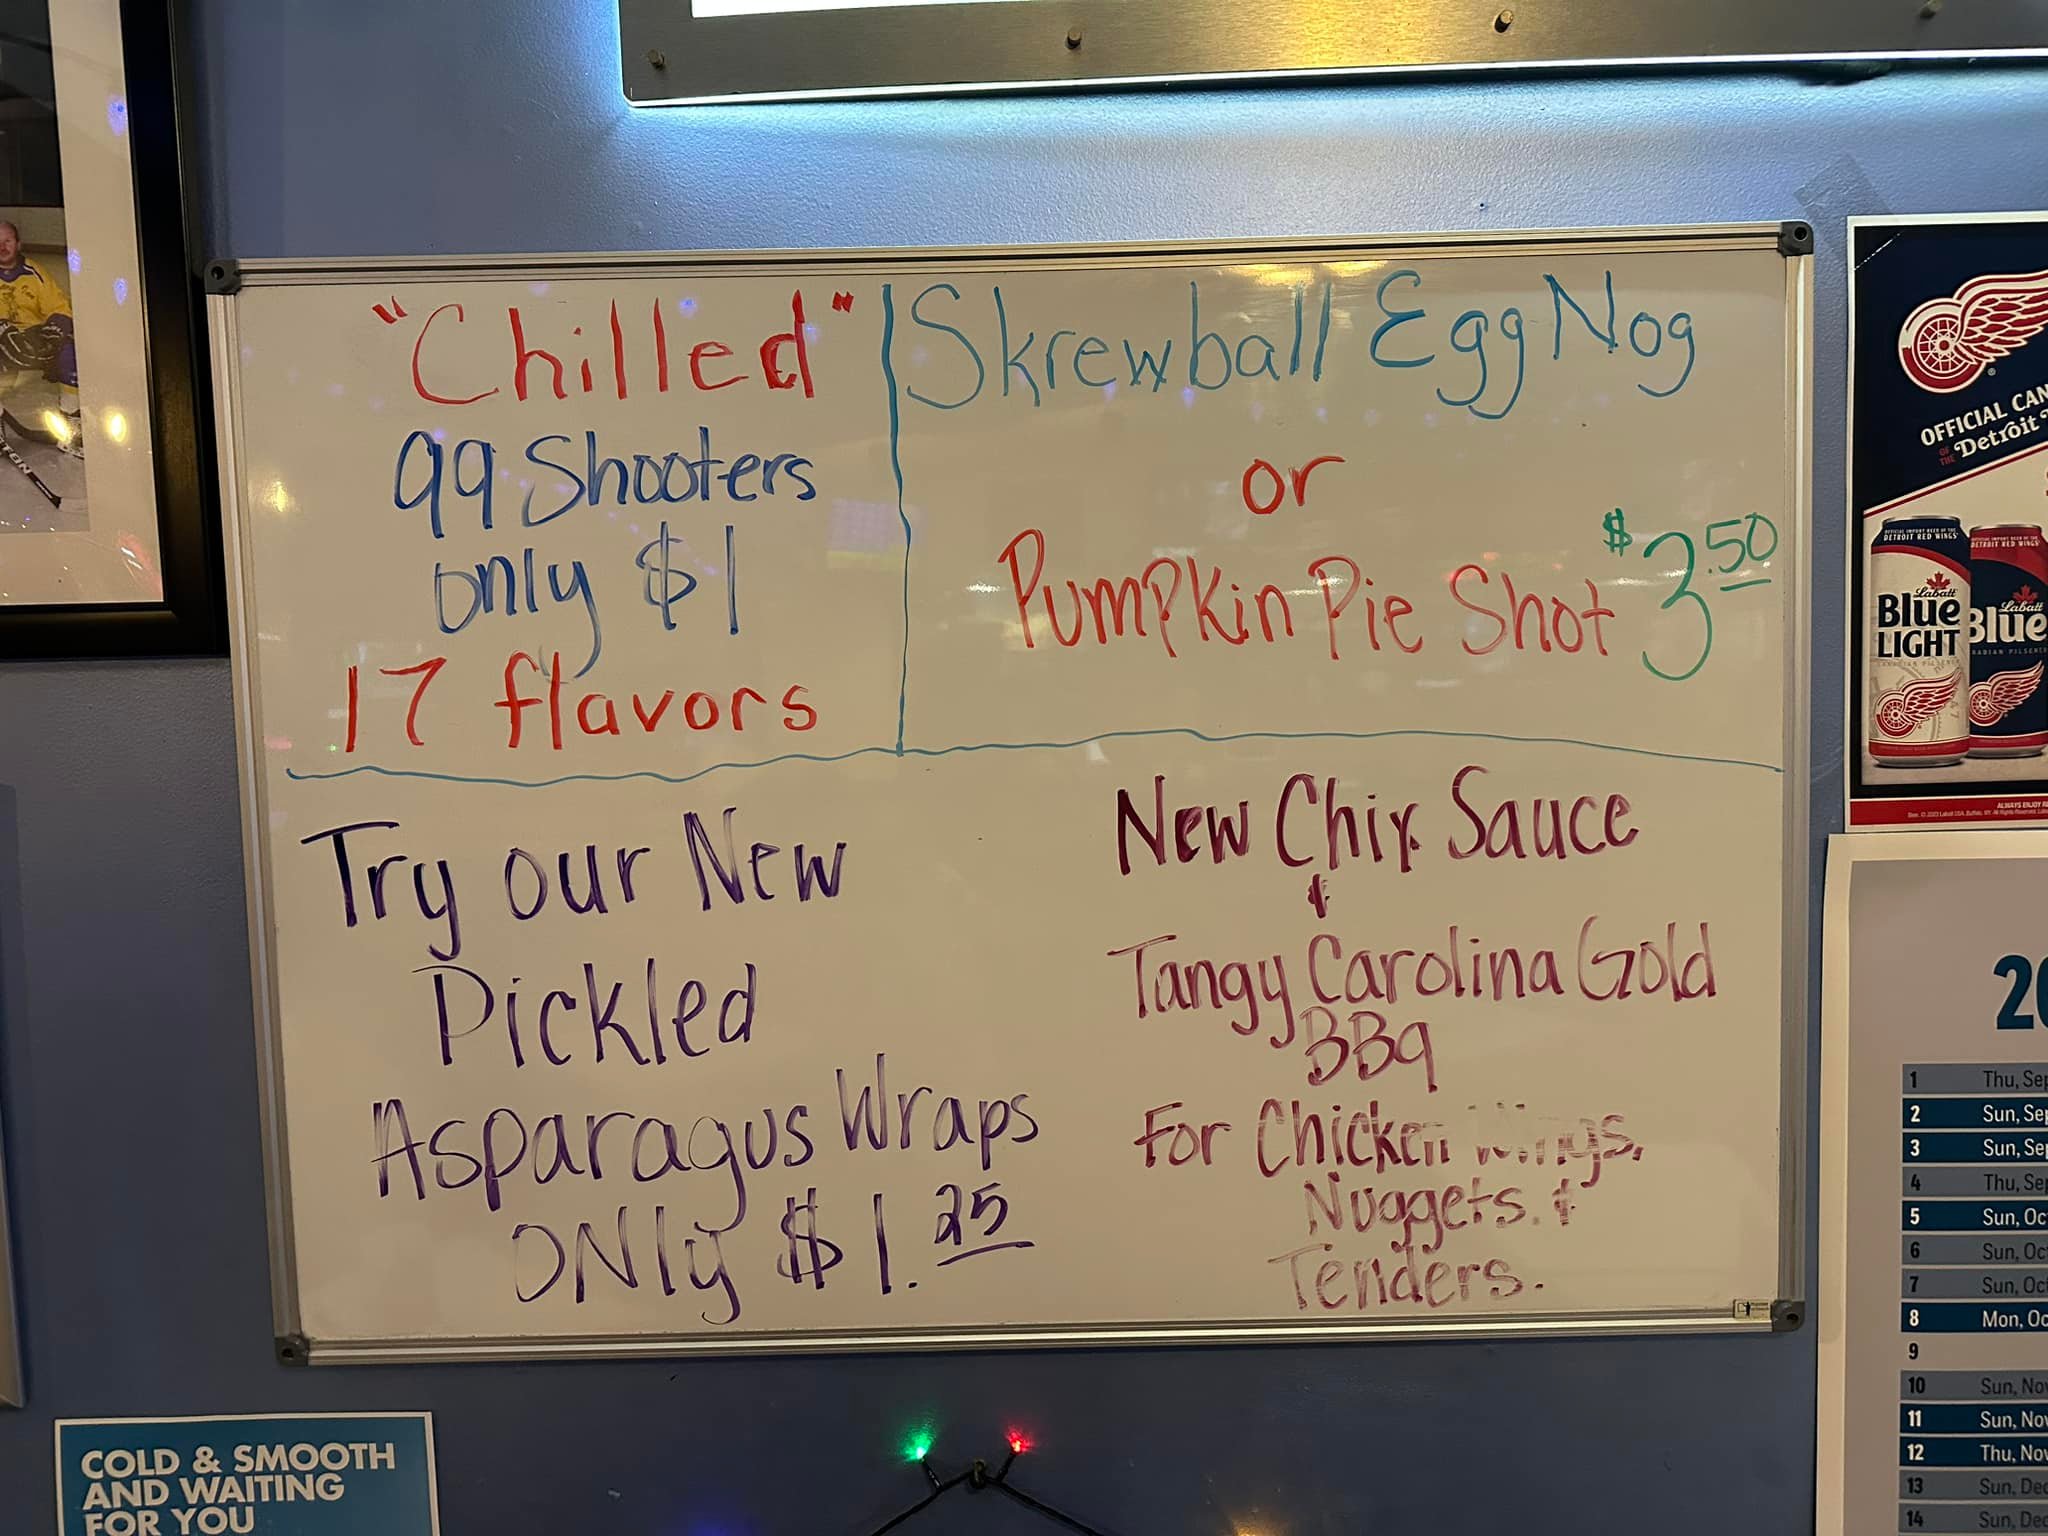 "Chilled"
99 Shooters
only $1
17 flavors
Skrewball Egg Nog
or
Pumpkin Pie Shot $3.50
Try our New
Pickled
Asparagus Wraps
ONly $1.25
New Chix Sauce
&
Tangy Carolina Gold
BBq
For Chicken Wings,
Nuggets. &
Tenders.
OFFICIAL CAN
OF THE Detroit
DETROIT RED WINGS
DETROIT RED WINGS
Labatt
Blue
LIGHT
Labatt
Blue
ALWAYS ENJOY
20
1 Thu, Sep
2 Sun, Sep
3 Sun, Sep
4 Thu, Sep
5 Sun, Oct
6 Sun, Oct
7 Sun, Oct
8 Mon, Oc
9
10 Sun, Nov
11 Sun, Nov
12 Thu, Nov
13 Sun, Dec
14 Sun, Dec
COLD & SMOOTH
AND WAITING
FOR YOU